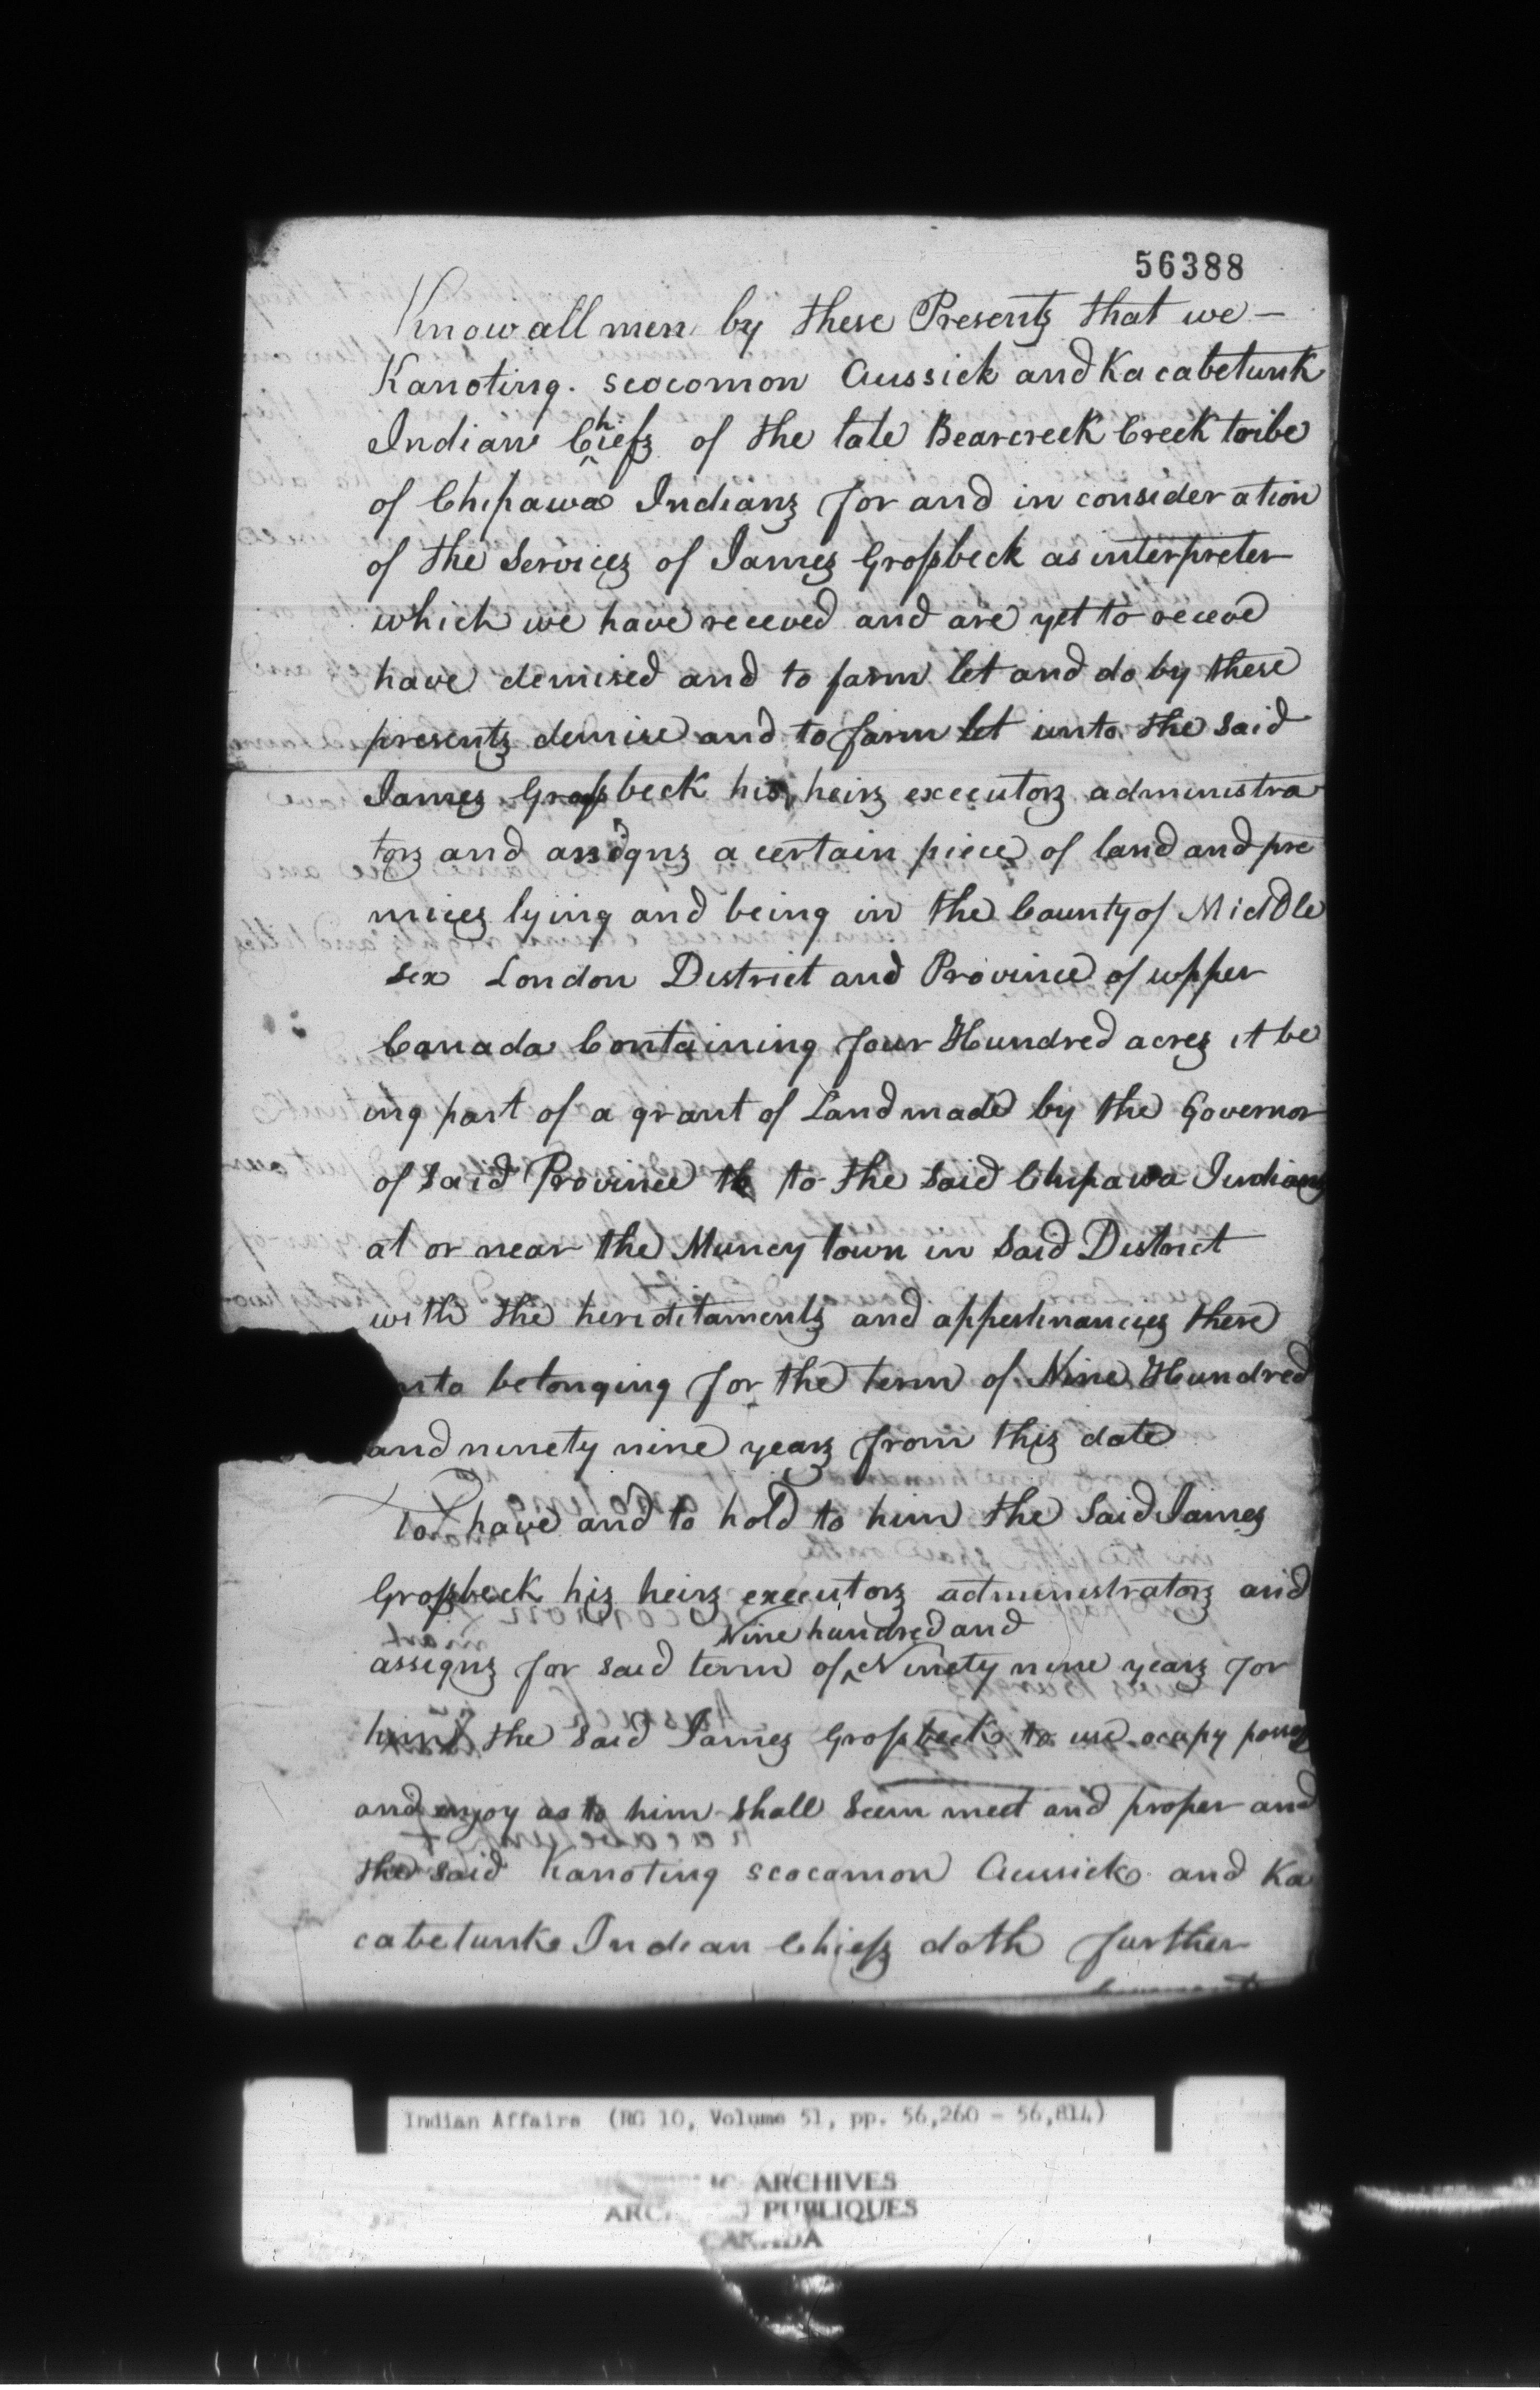 56388
Know all men by these Presents that we —
Kanoting. scocomon Aussick and Kacabetunk
Indian Chiefs of the late Bearcreek Creek tribe
of Chipawa Indians for and in consideration
of the Services of James Grossbeck as interpreter
which we have receved and are yet to receve
have demised and to farm let and do by these
presents demise and to farm let unto the said
James Grossbeck his heirs executors administra
tors and assigns a certain piece of land and pre
mices lying and being in the County of Middle
sex London District and Province of upper
Canada Containing four Hundred acres it be
ing part of a grant of Land made by the Governor
of said Province to the said Chipawa Indians
at or near the Muncy town in said District
with the hereditaments and appertinancies there
unto belonging for the term of Nine Hundred
and ninety nine years from this date
To have and to hold to him the said James
Grossbeck his heirs executors administrators and
Nine hundred and
assigns for said term of ^ Ninety nine years for
him the said James Grossbeck to use ocupy posses
and enjoy as to him shall seem meet and proper and
the said Kanoting scocomon Aussick and Ka
cabetunk Indian Chiefs doth further
Indian Affairs (RG 10, Volume 51, pp. 56,260 - 56,814)
ARCHIVES
PUBLIQUES
CANADA